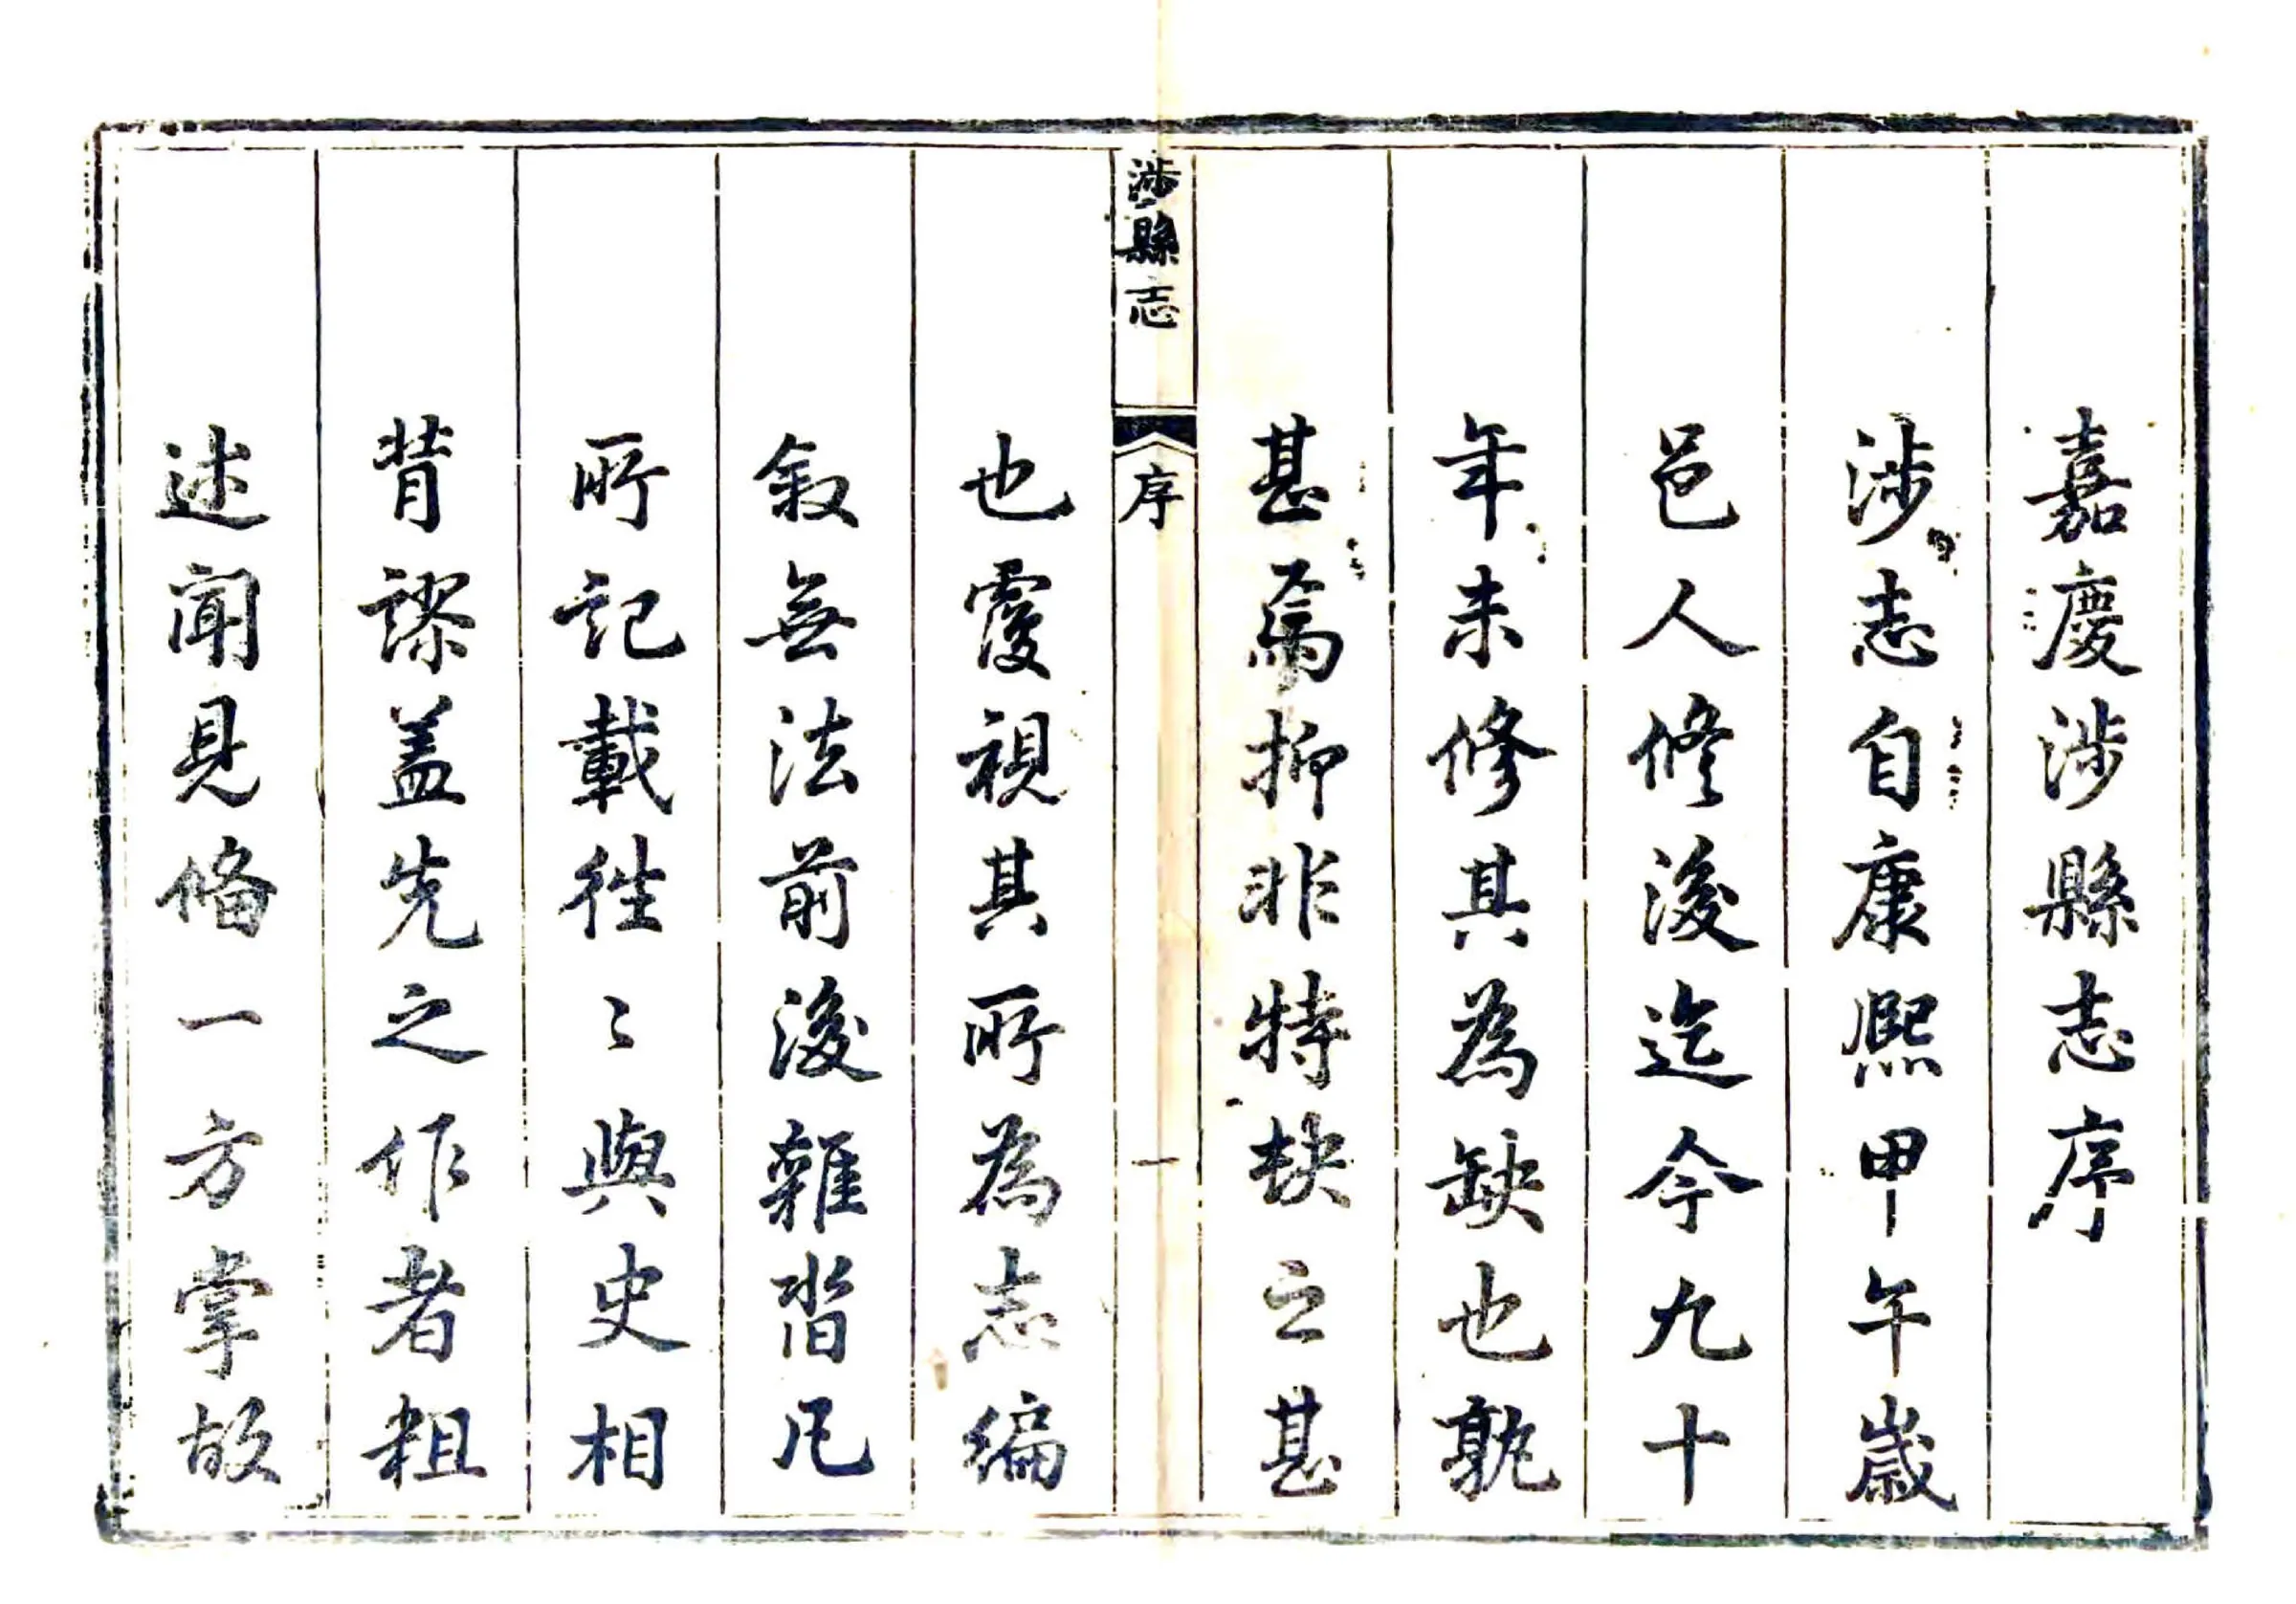 嘉慶涉縣志序
涉志自康熙甲午歲
邑人修後迄今九十
年未修其為缺也孰
甚焉抑非特缺之甚
涉縣志
序
一
也覆視其所為志編
敘無法前後雜沓凡
所記載徃〻與史相
背謬盖先之作者粗
述聞見俻一方掌故